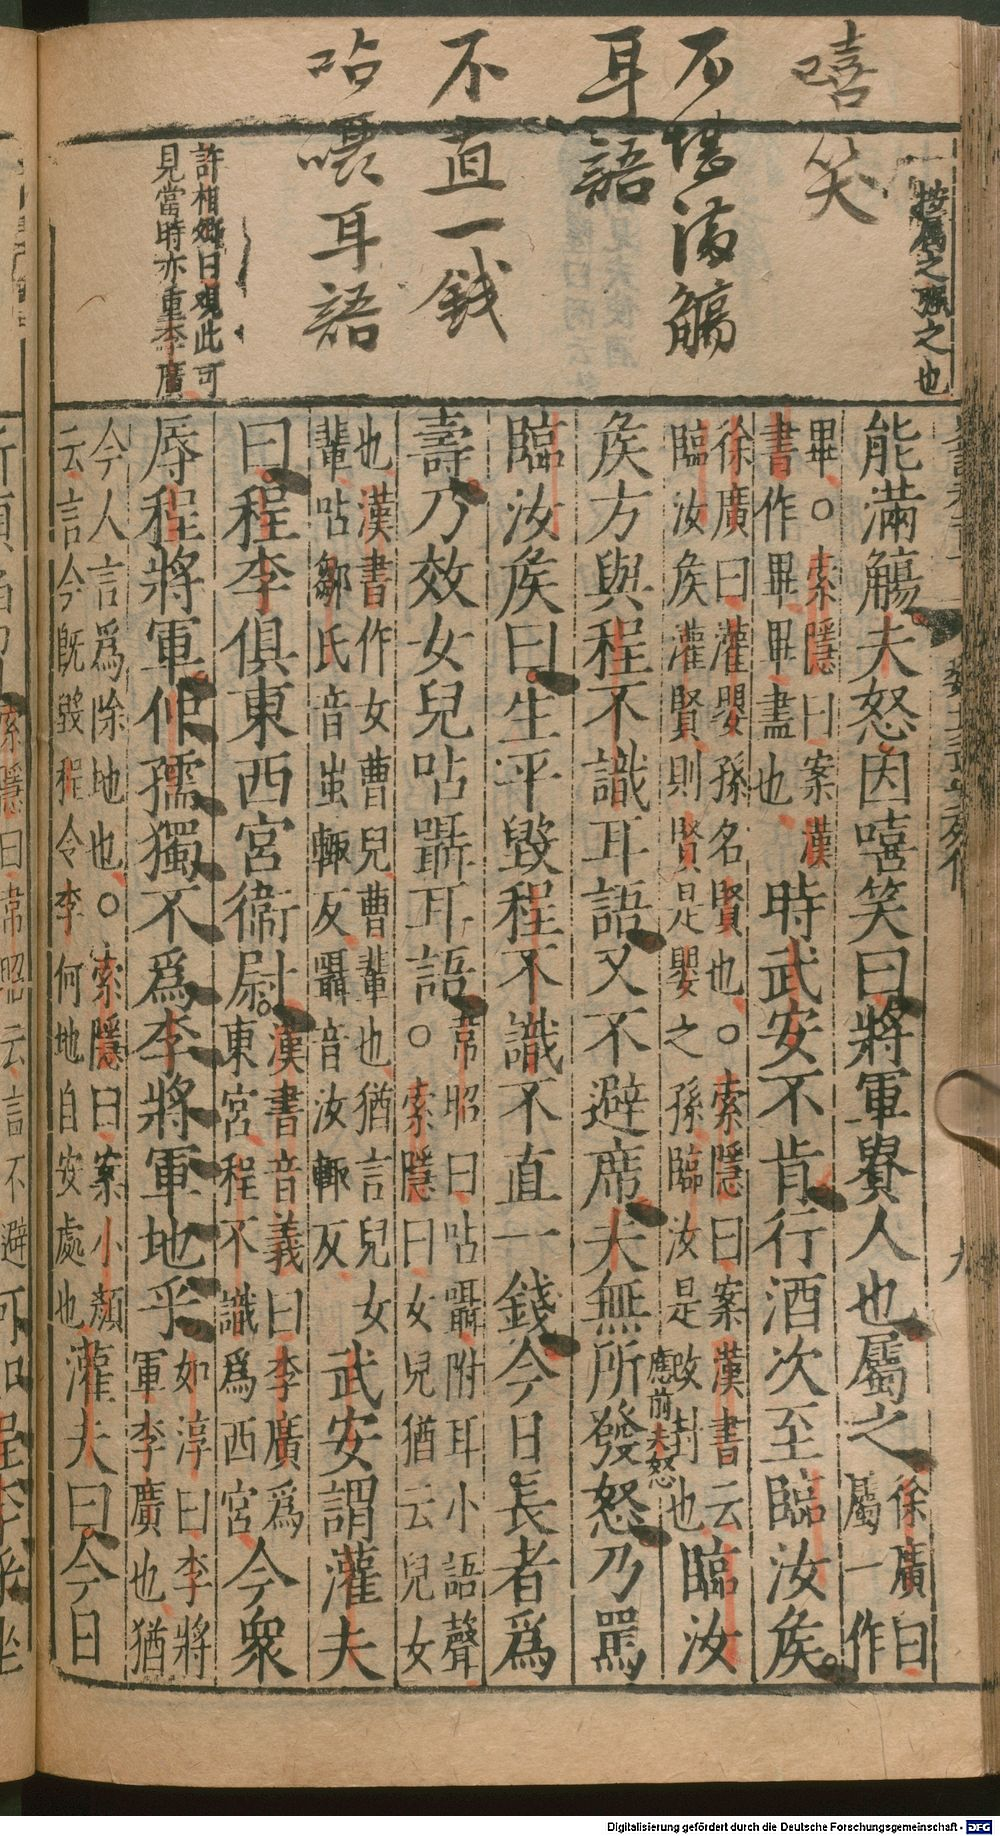 嘻笑
不堪滿觴
耳語
不直一錢
呫囁耳語
按屬之強之也
許相卿曰觀此可
見當時亦重李廣
能滿觴夫怒因嘻笑曰將軍貴人也屬之
徐廣曰屬一作
畢○索隱曰案漢
書作畢畢盡也
時武安不肯行酒次至臨汝矦
徐廣曰灌嬰孫名賢也○索隱曰案漢書云
臨汝矦灌賢則賢是嬰之孫臨汝是改封也
臨汝
矦方與程不識耳語又不避席夫無所發怒乃罵
應前夫怒
臨汝矦曰生平毀程不識不直一錢今日長者爲
壽乃效女兒呫聶耳語
韋昭曰呫囁附耳小語聲
○索隱曰女兒猶云兒女
也漢書作女曹兒曹輩也猶言兒女
輩呫鄒氏音蚩輒反囁音汝輒反
武安謂灌夫
曰程李俱東西宮衛尉
漢書音義曰李廣爲
東宮程不識爲西宮
今衆
辱程將軍仲孺獨不爲李將軍地乎
如淳曰李將
軍李廣也猶
今人言爲除地也○索隱曰案小顏
云言今既毀程令李何地自安處也
灌夫曰今日
九
Digitalisierung gefördert durch die Deutsche Forschungsgemeinschaft - DFG